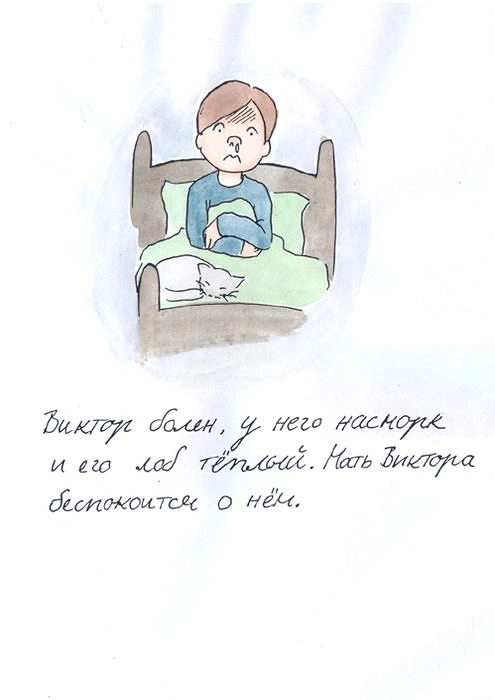 Виктор болен, у него насморк
и его лоб тёплый. Мать Виктора
беспокоится о нём.